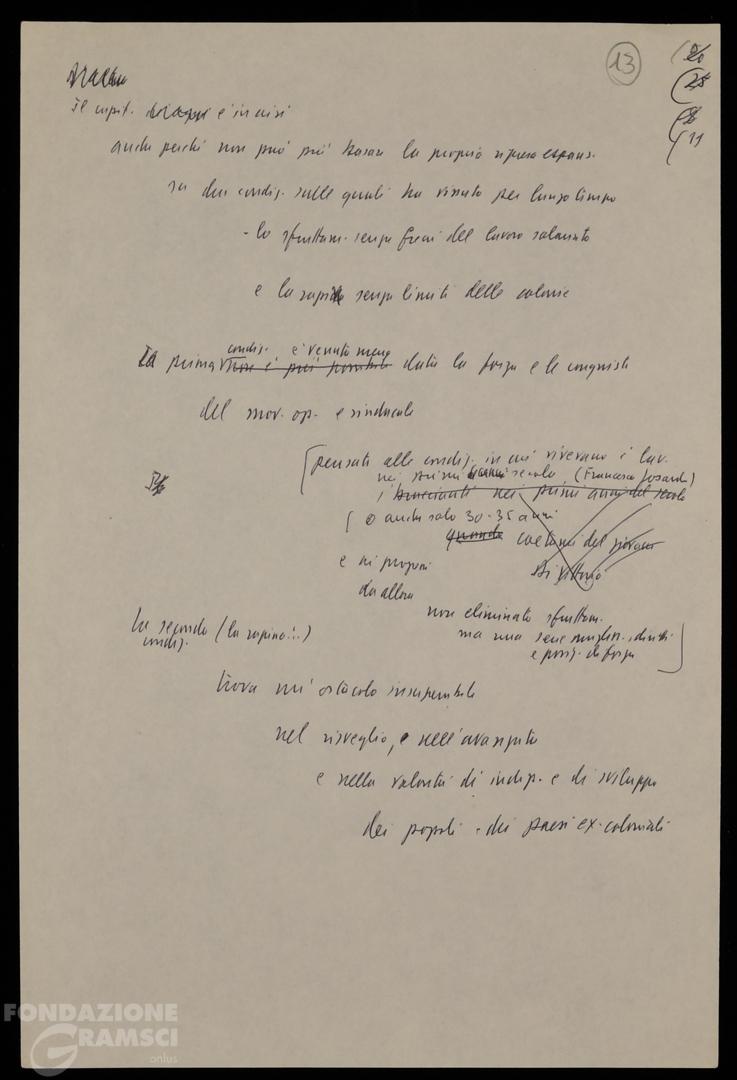 13
20
25
11
Il capit. è in crisi
anche perché non può più basare la propria ripresa espans.
su due condiz. sulle quali ha vissuto per lungo tempo
- lo sfruttam. senza freni del lavoro salariato
e la rapina senza limiti delle colonie
condiz. è venuta meno
La prima non è più possibile data la forza e le conquiste
del mov. op. e sindacale
(pensate alle condiz. in cui vivevano i lav.
nei primi secolo (Francesco
i braccianti nei primi anni del secolo
( o anche solo 30-35 anni
quando del giovane
Di Vittorio
e
da allora
non eliminato sfruttam.
ma una serie miglior. diritti
e posiz. di forza
La seconda (la rapina..)
condiz.
trova un'ostacolo insuperabile
nel risveglio, e nell'avanzata
e nella volontà di indip. e di sviluppo
dei popoli - dei paesi ex-coloniali
FONDAZIONE
GRAMSCI
onlus